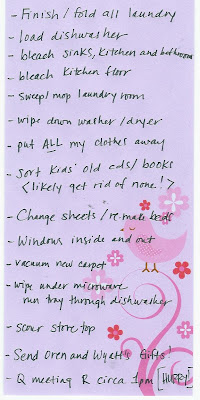 - Finish/fold all laundry
- load dishwasher
- bleach sinks, kitchen and bathroom
- bleach kitchen floor
- sweep/mop laundry room
- wipe down washer/dryer
- put ALL my clothes away
- Sort kids' old cds/books
<likely get rid of none!>
- Change sheets/re-make beds
- Windows inside and out
- vacuum new carpet
- wipe under microwave
run tray through dishwasher
- scour stove top
- Send Oren and Wyatt's Gifts!
- Q meeting R circa 1pm [HURRY]